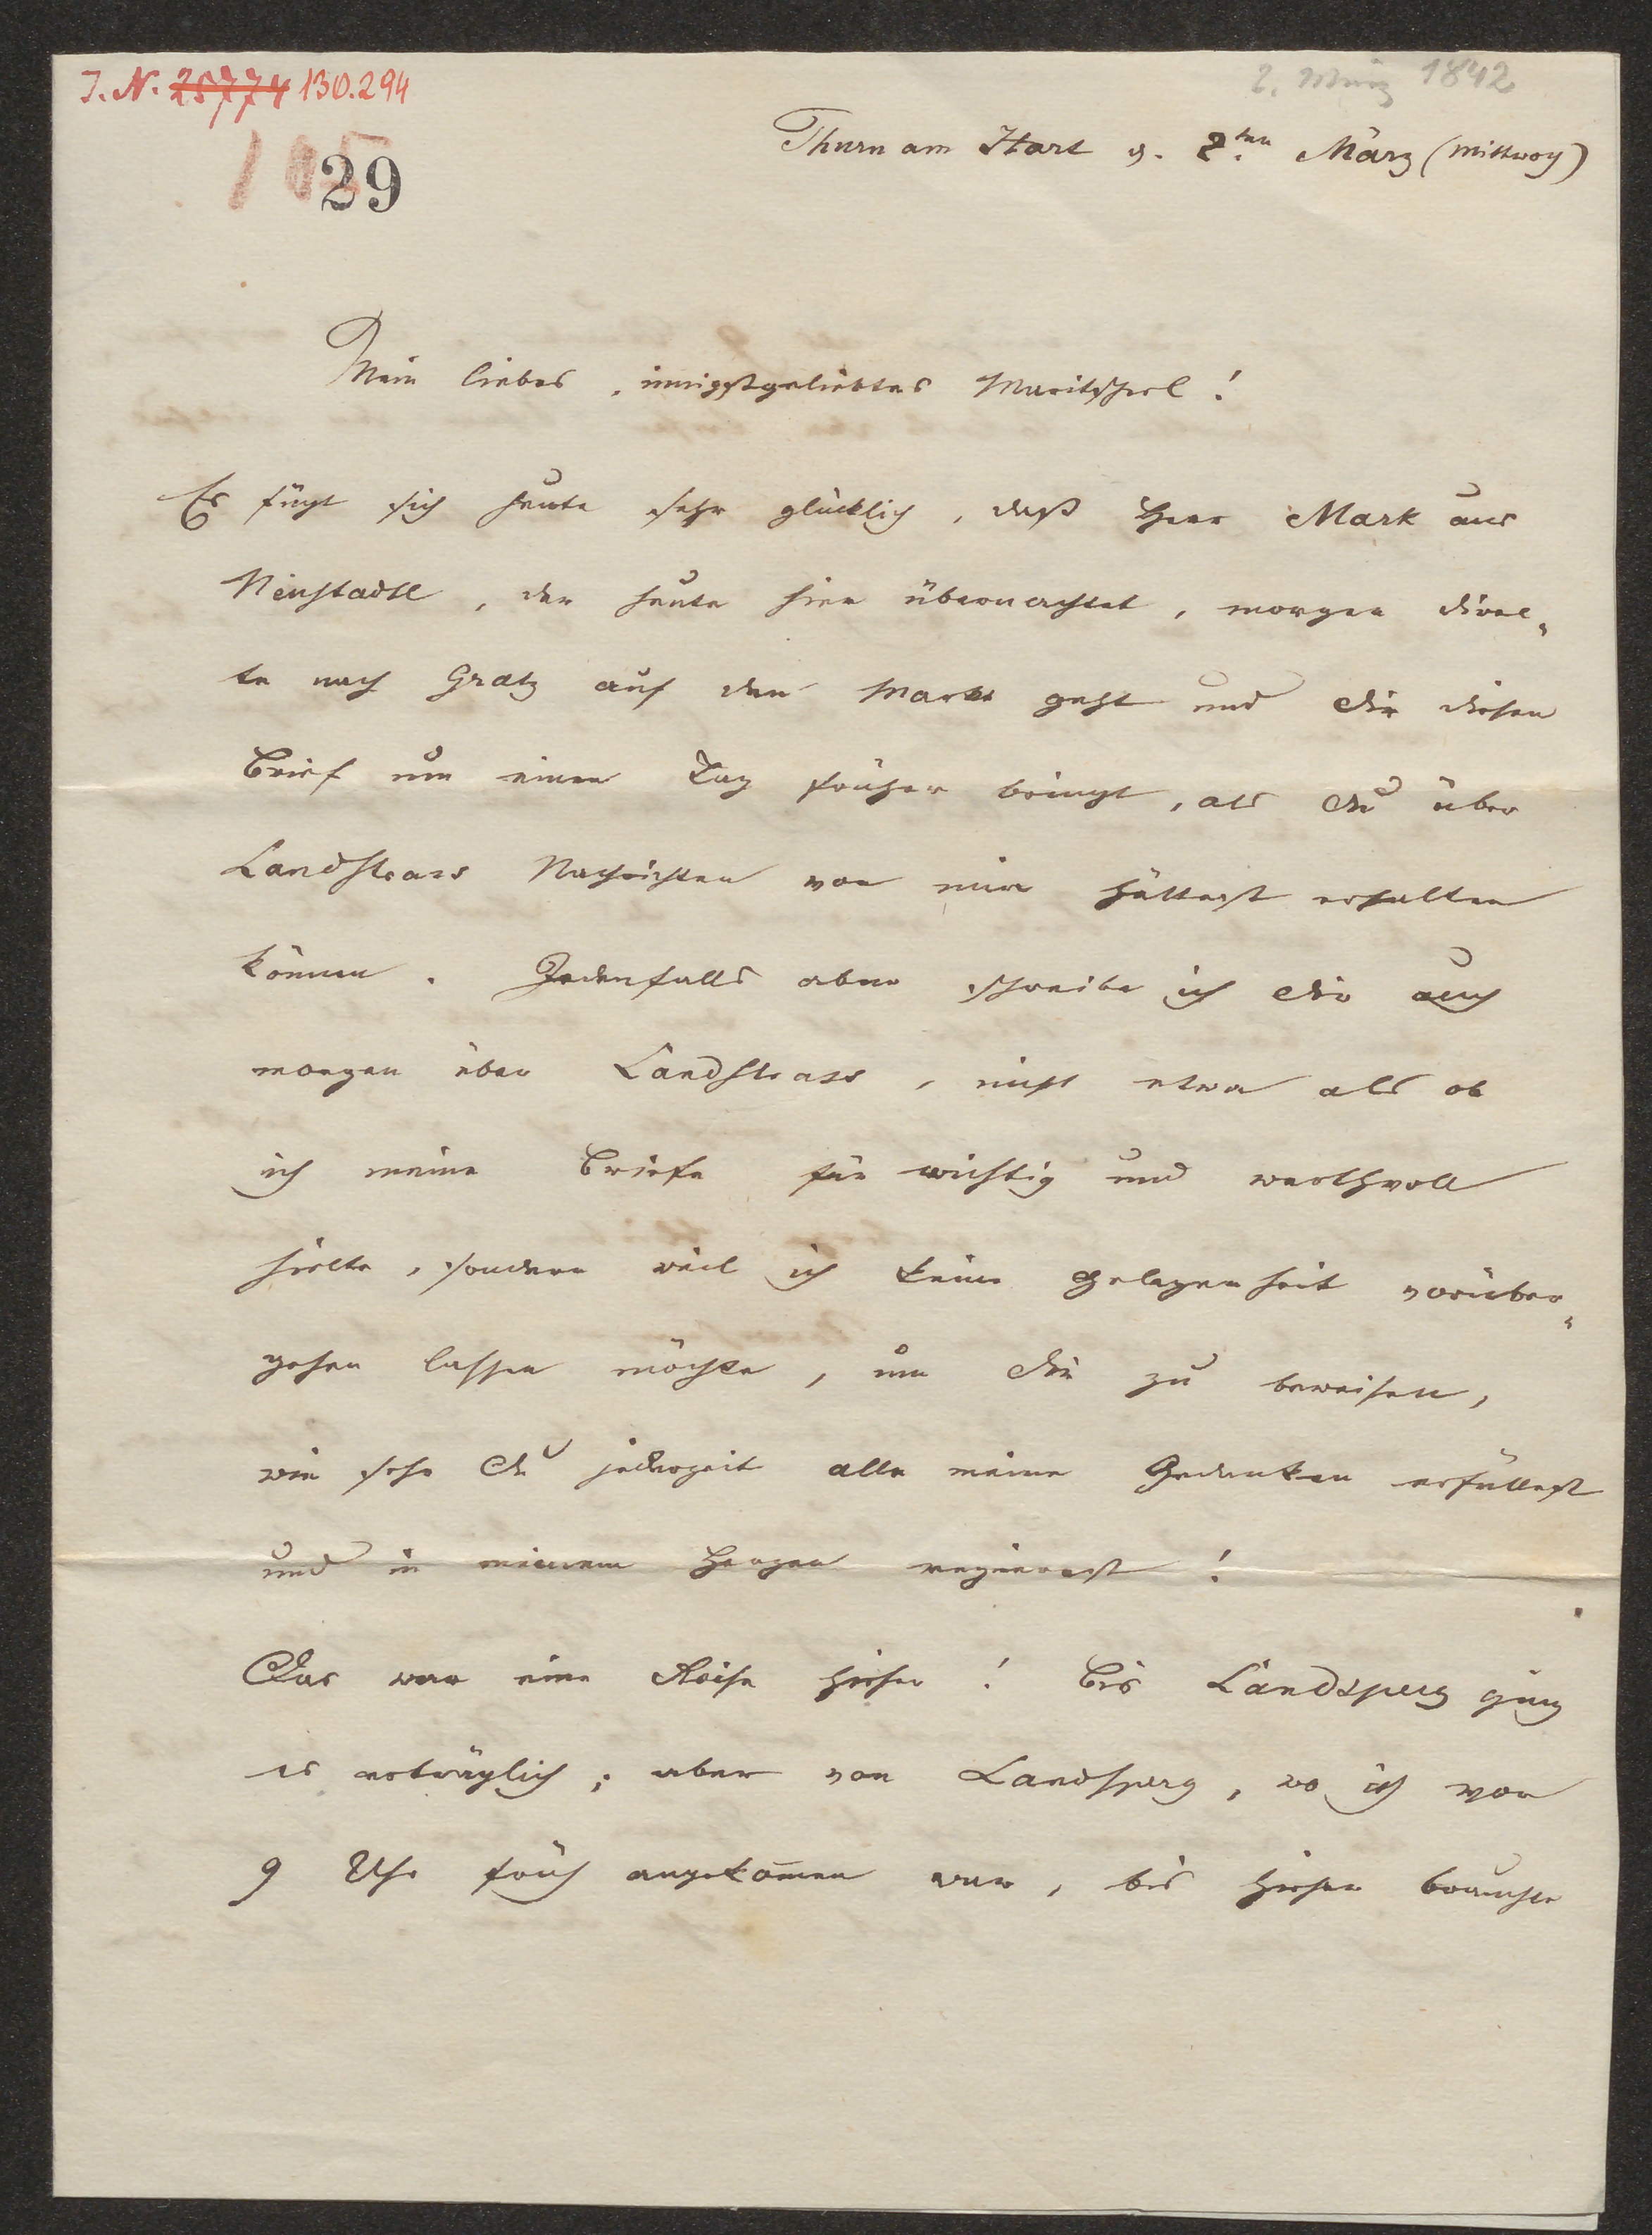 J. N. 25774 130.294
2. März 1842
29
Thurn am Hart d. 2ten März (Mittwoch)
Mein liebes, innigstgeliebtes Maritscherl!
Es fügt sich heute sehr glücklich, daß Herr Mark aus
Neustadtl, der heute hier übernachtet, morgen direc„
te nach Gratz auf den Markt geht und Dir diesen
Brief um einen Tag früher bringt, als Du über
Landstrass Nachrichten von mir hättest erhalten
können. Jedenfalls aber schreibe ich Dir auch
morgen über Landstrass, nicht etwa als ob
ich meine Briefe für wichtig und werthvoll
hielte, sondern weil ich keine Gelegenheit vorüber„
gehen lassen möchte, um Dir zu beweisen,
wie sehr Du jederzeit alle meine Gedanken erfüllest
und in meinem Herzen regierest!
Das war eine Reise hieher! Bis Landsperg ging
es erträglich; aber von Landsperg, wo ich vor
9 Uhr früh angekom̄en war, bis hieher brauchte